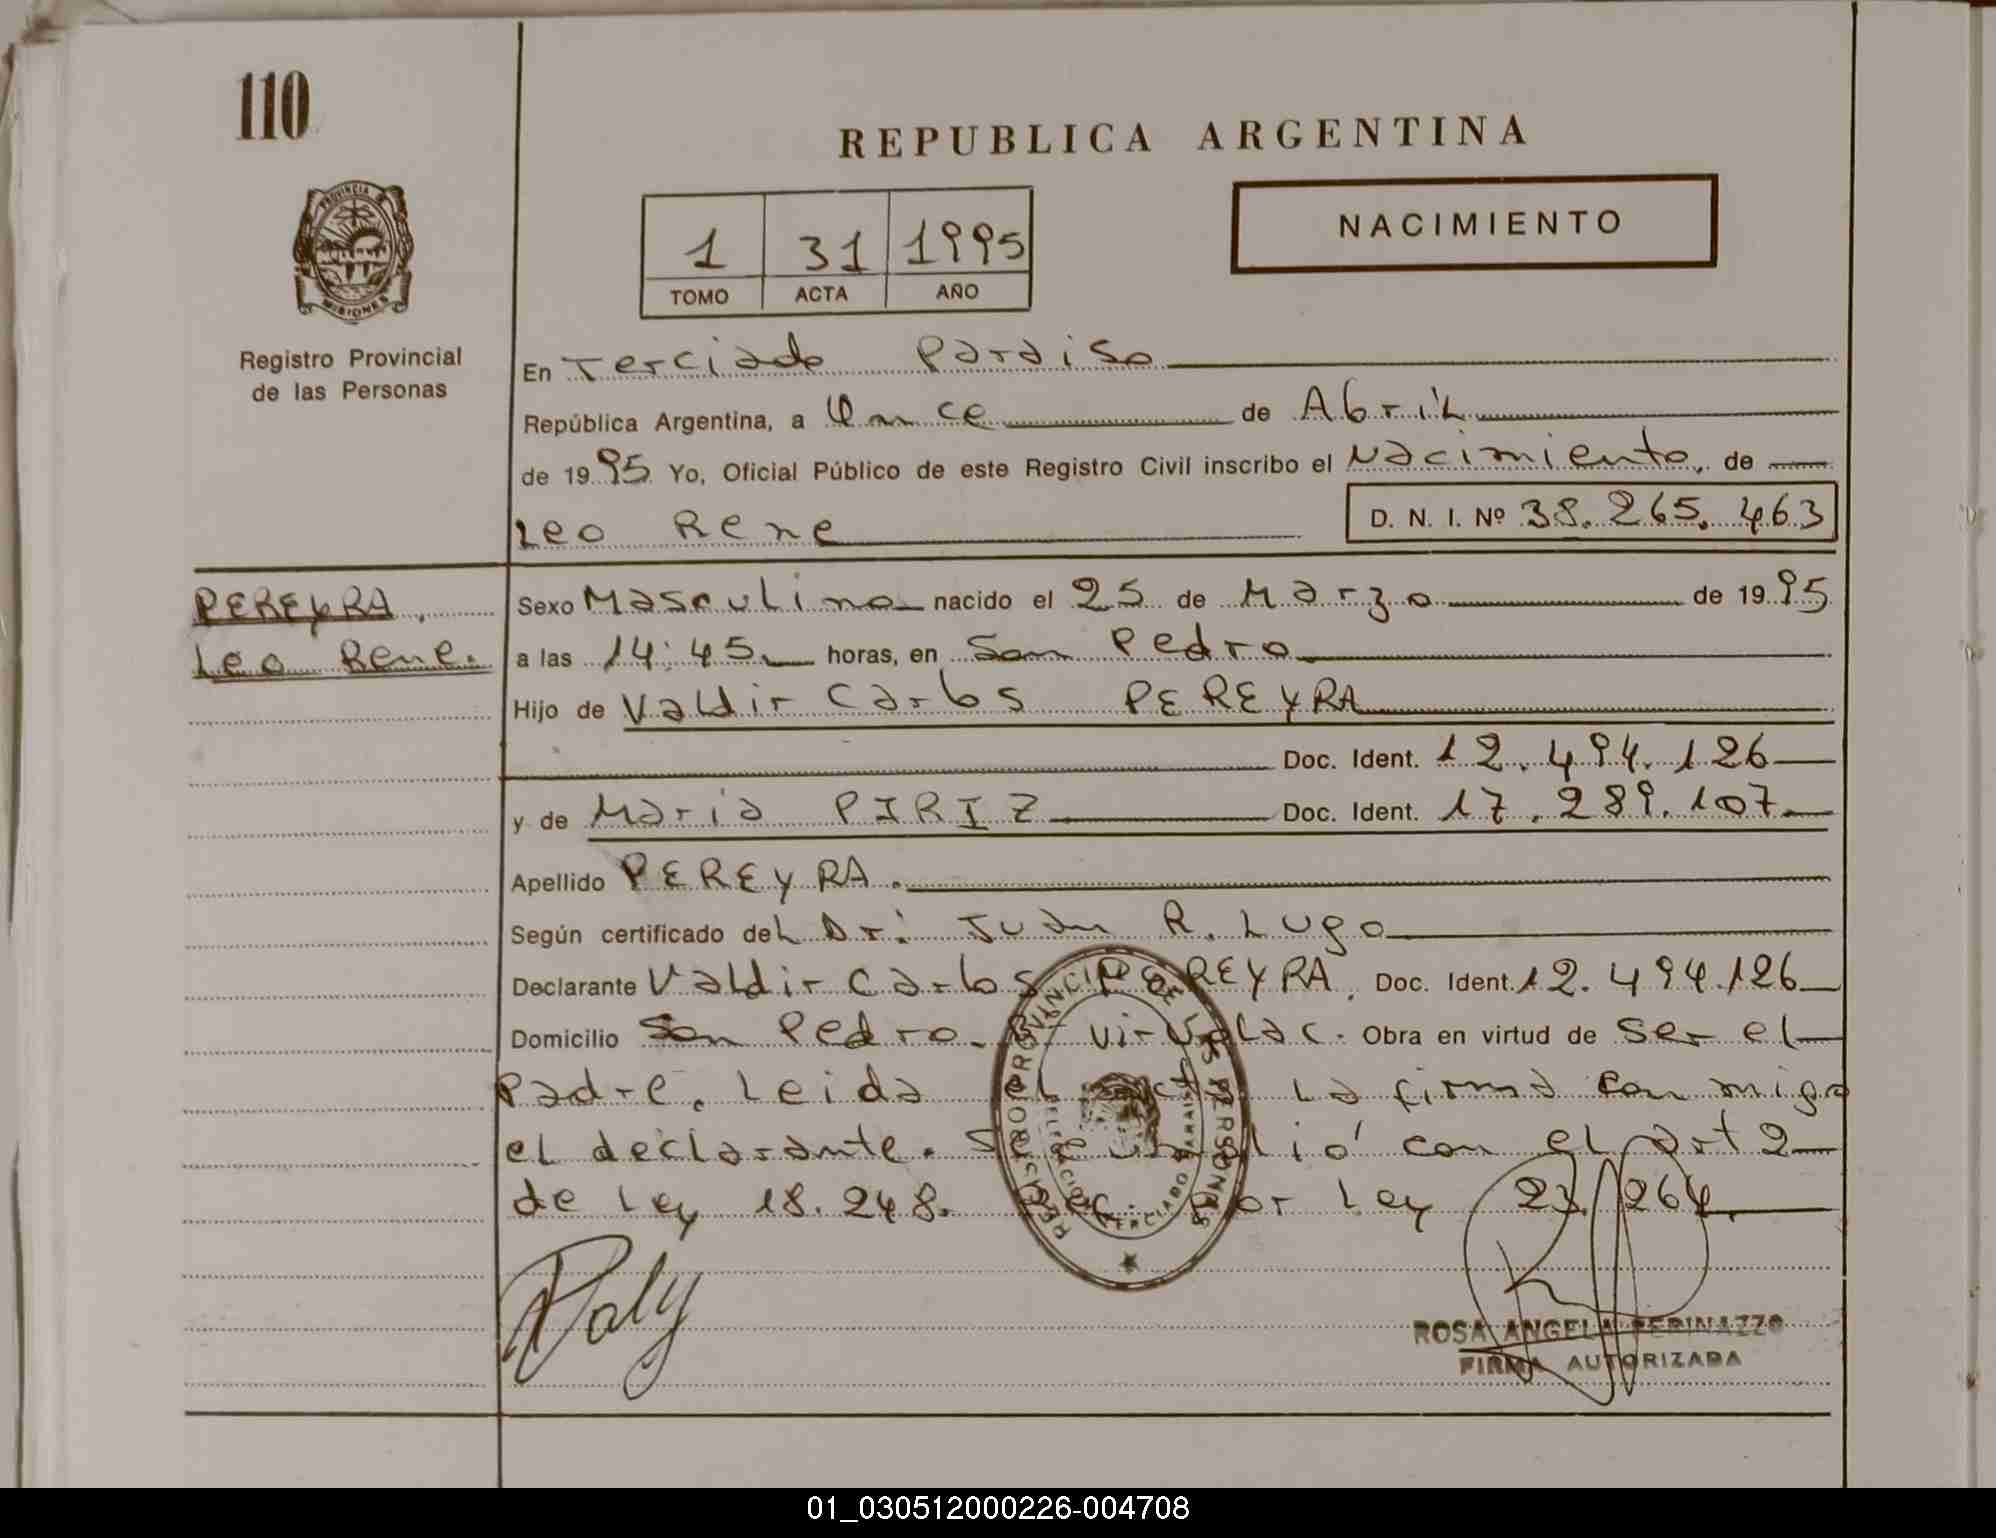 110
REPUBLICA ARGENTINA
PROVINCIA
MISIONES
NACIMIENTO
1 31 1995
TOMO ACTA AÑO
Registro Provincial
de las Personas
En Terciado Paraiso
República Argentina, a Once de Abril
de 1995 Yo, Oficial Público de este Registro Civil inscribo el Nacimiento, de
Leo Rene D. N. I. Nº 38.265.463
PEREYRA,
Leo Rene.
Sexo Masculino nacido el 25 de Marzo de 1995
a las 14:45 horas, en San Pedro
Hijo de Valdir Carlos PEREYRA
Doc. Ident. 12.494.126
y de Maria PIRIZ Doc. Ident. 17.289.107
Apellido PEREYRA.
Según certificado del Dr: Juan R. Lugo
Declarante Valdir Carlos PEREYRA, Doc. Ident. 12.494.126
Domicilio San Pedro. Obra en virtud de ser el
Padre. Leida el acta La firma conmigo
el declarante. Se cumplió con el art 2
de Ley 18.248. por Ley 23.264.
REGISTRO PROVINCIAL DE LAS PERSONAS
DELEGACION TERCIADO PARAISO
ROSA ANGELA PERINAZZO
FIRMA AUTORIZADA
01_030512000226-004708